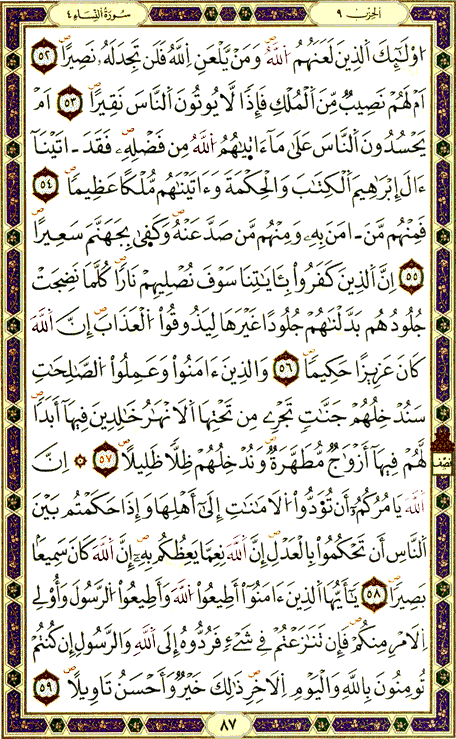 الحزب ٩
سورة النساء ٤
اُوْلَٰٓئِكَ اَ۬لذِينَ لَعَنَهُمُ اُ۬للَّهُ وَمَنْ يَّلْعَنِ اِ۬للَّهُ فَلَن تَجِدَ لَهُۥ نَصِيراً ٥٢
اَمْ لَهُمْ نَصِيبٌ مِّنَ اَ۬لْمُلْكِ فَإِذاٗ لَّا يُوتُونَ اَ۬لنَّاسَ نَقِيراً ٥٣ اَمْ
يَحْسُدُونَ اَ۬لنَّاسَ عَلَىٰ مَآ ءَاتَىٰهُمُ اُ۬للَّهُ مِن فَضْلِهِۦ فَقَدَ ـ اتَيْنَآ
ءَالَ إِبْرَٰهِيمَ اَ۬لْكِتَٰبَ وَالْحِكْمَةَ وَءَاتَيْنَٰهُم مُّلْكاً عَظِيماً ٥٤
فَمِنْهُم مَّنَ ـ امَنَ بِهِۦ وَمِنْهُم مَّن صَدَّ عَنْهُ وَكَفَىٰ بِجَهَنَّمَ سَعِيراً
٥٥ اِنَّ اَ۬لذِينَ كَفَرُواْ بِـَٔايَٰتِنَا سَوْفَ نُصْلِيهِمْ نَاراً كُلَّمَا نَضِجَتْ
جُلُودُهُم بَدَّلْنَٰهُمْ جُلُوداً غَيْرَهَا لِيَذُوقُواْ اُ۬لْعَذَابَ إِنَّ اَ۬للَّهَ
كَانَ عَزِيزاً حَكِيماً ٥٦ وَالذِينَ ءَامَنُواْ وَعَمِلُواْ اُ۬لصَّٰلِحَٰتِ
سَنُدْخِلُهُمْ جَنَّٰتٍ تَجْرِے مِن تَحْتِهَا اَ۬لَانْهَٰرُ خَٰلِدِينَ فِيهَآ أَبَداً
لَّهُمْ فِيهَآ أَزْوَٰجٌ مُّطَهَّرَةٌ وَنُدْخِلُهُمْ ظِلّاً ظَلِيلاً ٥٧ ۞ اِنَّ
اَ۬للَّهَ يَامُرُكُمُۥٓ أَن تُؤَدُّواْ اُ۬لَامَٰنَٰتِ إِلَىٰٓ أَهْلِهَا وَإِذَا حَكَمْتُم بَيْنَ
اَ۬لنَّاسِ أَن تَحْكُمُواْ بِالْعَدْلِ إِنَّ اَ۬للَّهَ نِعِمَّا يَعِظُكُم بِهِۦٓ إِنَّ اَ۬للَّهَ كَانَ سَمِيعاً
بَصِيراً ٥٨ يَٰٓأَيُّهَا اَ۬لذِينَ ءَامَنُوٓاْ أَطِيعُواْ اُ۬للَّهَ وَأَطِيعُواْ اُ۬لرَّسُولَ وَأُوْلِے
اِ۬لَامْرِ مِنكُمْ فَإِن تَنَٰزَعْتُمْ فِے شَےْءٍ فَرُدُّوهُ إِلَى اَ۬للَّهِ وَالرَّسُولِ إِن كُنتُمْ
تُومِنُونَ بِاللَّهِ وَالْيَوْمِ اِ۬لَاخِرِ ذَٰلِكَ خَيْرٌ وَأَحْسَنُ تَاوِيلاً ٥٩
٨٧